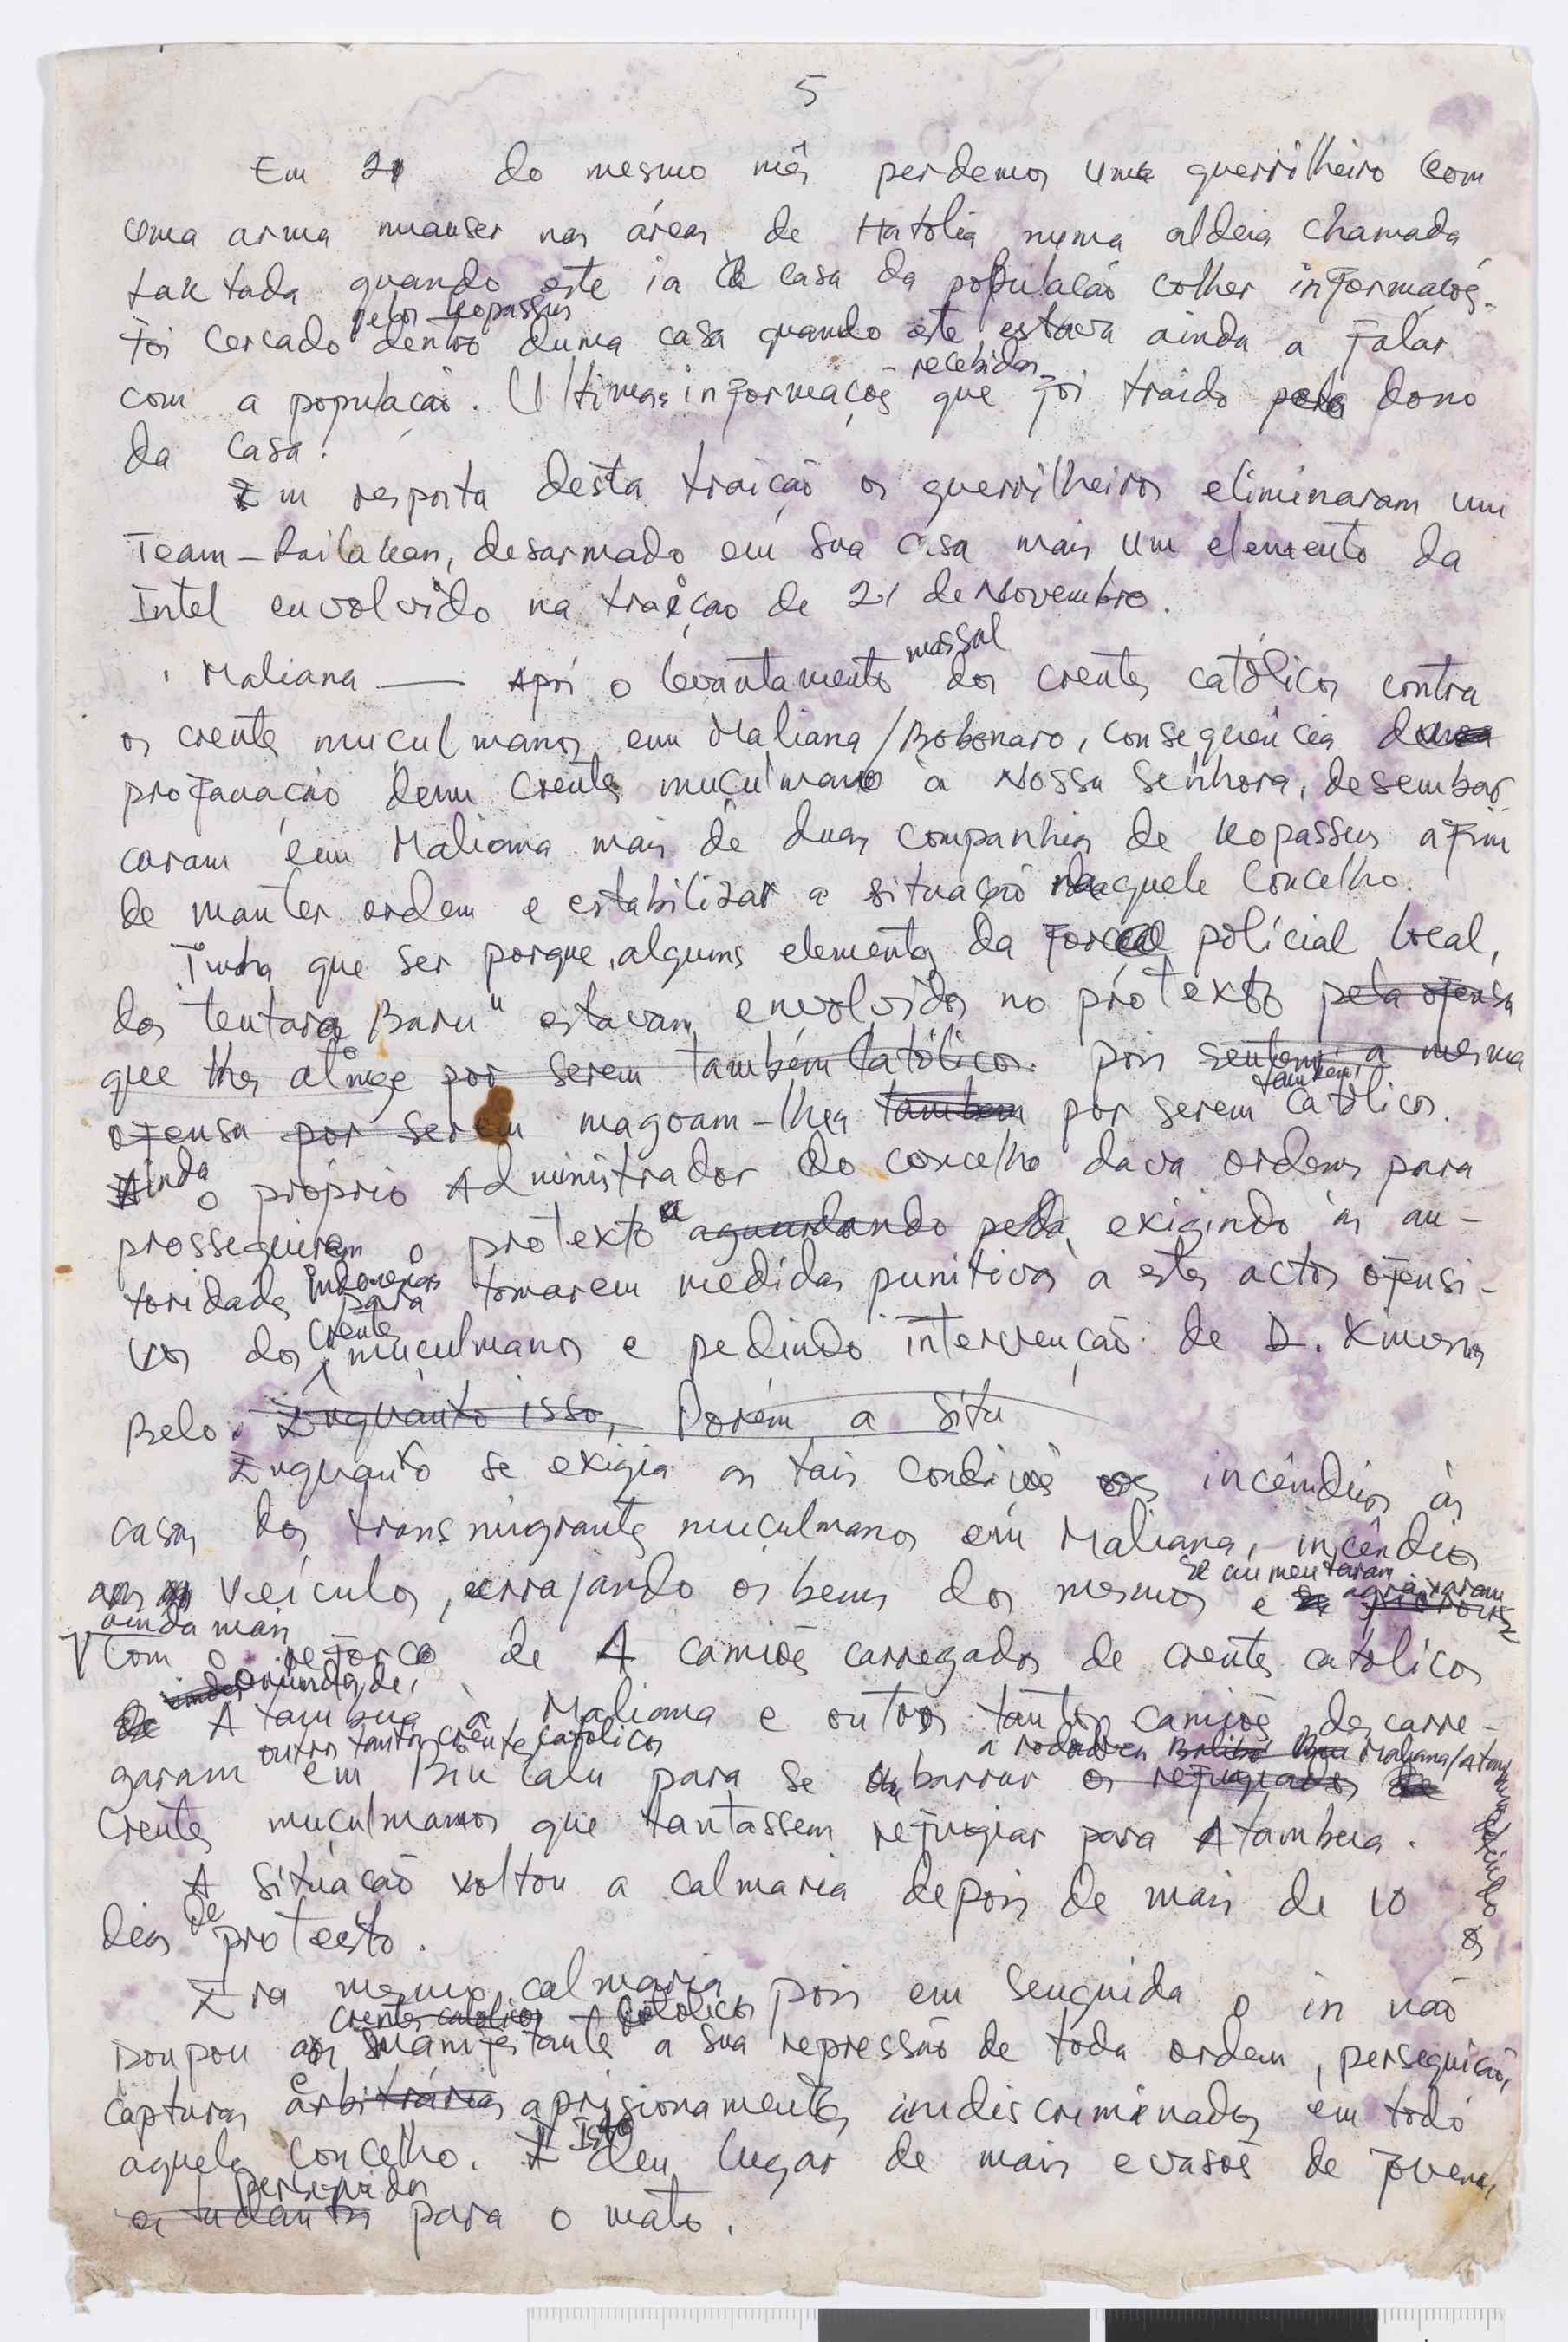 5
Em 21 do mesmo mês perdemos um guerrilheiro com
uma arma mauser nas áreas de Hatolia numa aldeia chamada
taktada quando este ia à casa da população colher informações.
Foi cercado pelos kopassus dentro duma casa quando este estava ainda a falar
com a população. Ultimas informações recebidas que foi traído pelo dono
da casa.
Em resposta desta traição os guerrilheiros eliminaram um
Team-Railakan, desarmado em sua casa mais um elemento da
Intel envolvido na traição de 21 de Novembro.
Maliana — Após o levantamento massal dos crentes católicos contra
os crentes muçulmanos em Maliana/Bobonaro, consequência
profanação dum crente muçulmano à Nossa Senhora, desembar
caram em Maliana mais de duas companhias de kopassus afim
de manter ordem e estabilizar a situação naquele Concelho.
Tinha que ser porque, alguns elementos da força policial local,
dos "tentara Baru" estavam envolvidos no protexto pela ofensa
que lhes atinge por serem também Católicos. pois sentem a mesma
ofensa por serem magoam-lhes também por serem também católicos.
Ainda o próprio Administrador do concelho dava ordens para
prosseguirem o protexto e aguardando pela exigindo às au-
toridades indonésias para tomarem medidas punitivas a estes actos ofensi-
vos dos crentes muçulmanos e pedindo intervenção de D. Ximenes
Belo. Enquanto isso, Porém a situ
Enquanto se exigia as tais condições os incêndios às
casas dos transmigrantes muçulmanos em Maliana, incêndios
aos veículos, os bens dos mesmos se aumentaram e se agravaram
ainda mais
Com o reforço de 4 camiões carregados de crentes católicos
vindos oriundos de
Atambua à Maliana e outros tantos camiões descarre-
garam outros tantos crentes católicos em para se barrar a rodovia Maliana/Atambua os refugiados
crentes muçulmanos que tantassem refugiar para Atambua.
A situação voltou a calmaria depois de mais de 10
dias de protesto.
Era mesmo calmaria pois em senguida o in não
poupou aos crentes católicos manifestantes católicos a sua repressão de toda ordem, perseguição,
capturas e arbitrárias aprisionamentos indiscriminados em todo
aquele Concelho. Isto deu lugar de mais evasões de jovens
estudantes perseguidos para o mato.